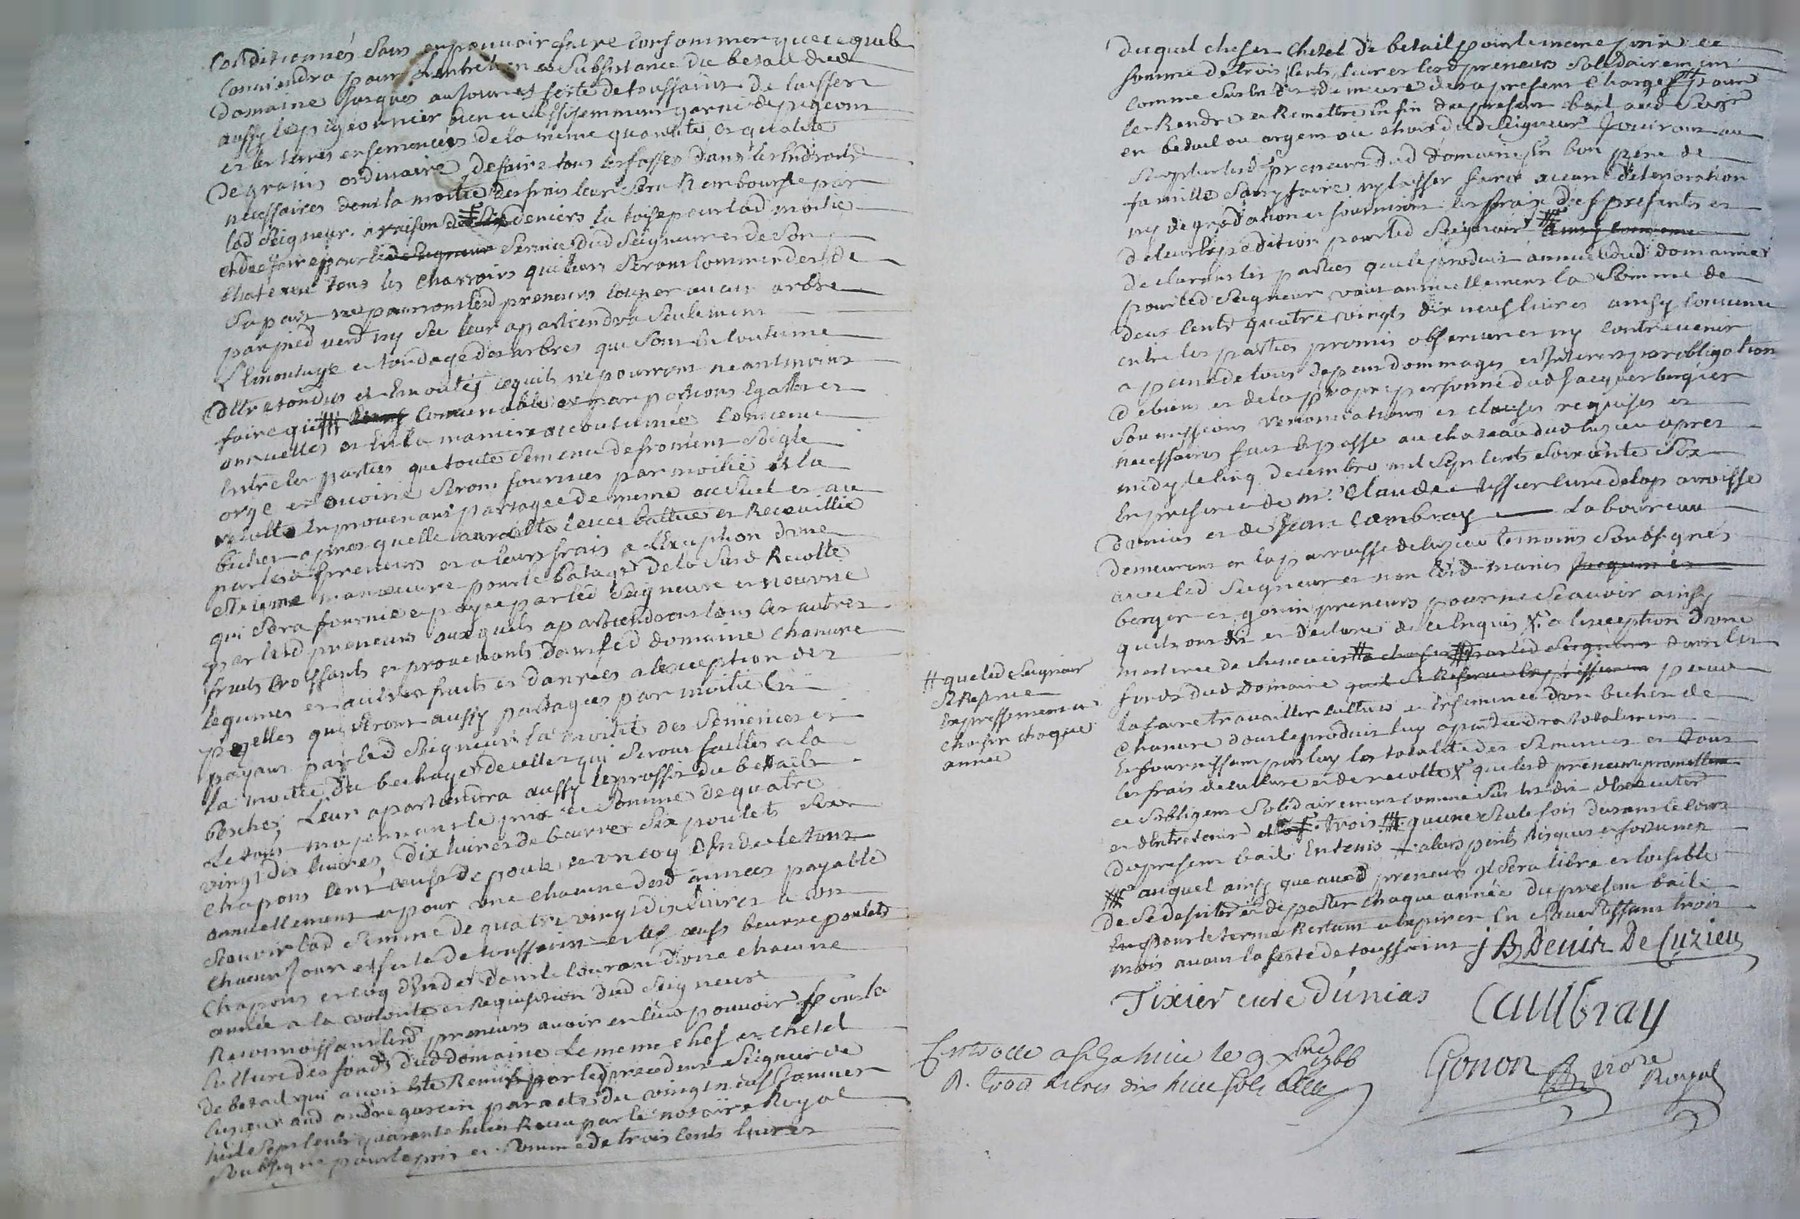 conditionnés sans en pouvoir faire consommer que ce quil
conviendra pour l'entretien et subsistance du betail dud
domaine jusques au jour et feste de toussaint de laisser
aussy le pigeonnier bien et suffisemment garni de pigeons
et les terres ensemencées de la même quantité et qualité
de grains ordinaire, de faire tous les fossés dans les endroits
nécessaires dont la moitié des frais leur sera remboursée par
led seigneur a raison de deniers la toise pour lad moitié
et de faire pour le service dud seigneur et de son
chateau tous les charrois qui leurs seront commandés de
sa part ne pourront lesd preneurs couper aucun arbre
par pied verd ny sec leur apartiendra seulement
l'emontage et tondage des arbres qui sont de coutume
d'etre tondus et emontés ce quils ne pourront neantmoins
faire qu'# convenable et par portions egalles et
annuelles et en la maniere acoutumée convenu
entre les parties que toute semence de froment seigle
orge et avoine seront fournies par moitié et la
recolte en provenant partagée de meme au suel et au
bicher apres quelle aura été levée battue et recueillie
par lesd preneurs et a leurs frais a l'exception d'une
manoeuvre pour le batage de la susd recolte
qui sera fournie et payée par led seigneur et nourrie
par lesd preneurs auxquels apartiendront tous les autres
fruits croissants et provenants dans led domaine chanvre
legumes et autres fruits et danrées a l'exception des
qui seront aussy partagées par moitié en
payant par led seigneur la moitié des semences et
la moitié du bechage de celles qui seront faittes a la
beche, leur apartiendra aussy le proffit du bettail
le tout moyennant le prix et somme de quatre
vingt dix livres, dix livres de beurre six poulets six
chapons cent oeufs de poule et un coq d'Inde le tout
annuellement et pour une chacune desd années payable
scavoir lad somme de quatre vingt dix livres a un
chacun jour et feste de toussaint et les oeufs beurre poulets
chapons et coq d'Inde dans le courant d'une chacune
année a la volonté et requisition dud seigneur
Reconnoissant lesd preneurs avoir en leur pouvoir pour la
culture des fonds dud domaine le meme chef et chetel
de betail qui avoit été remis par led precedent seigneur de
Luzieu aud andré garcin par acte du vingt neuf janvier
mil sept cents quarante huit Recu par le notaire Royal
soubsigné pour le prix et somme de trois cents livres
duquel chef et chetel de betail pour le meme prix et
somme de trois cents livres lesd preneurs solidairement
comme sus est dit demeurent des apresent chargés pour
le Rendre et Remettre en fin du present bail aud seigr
en betail ou argent au choix dud seigneur Jouiront au
surplus lesd preneurs dud domaine en bon pere de
famille sans y faire ny laisser faire aucune deterioration
ny degradation et fourniront les frais des presentes et
de leur expedition pour led seigneur #
declarent les parties que le produit annuel dud domaine
pour led seigneur vaut annuellement la somme de
deux cents quatre vingts dix neuf livres ainsy convenu
entre les parties promis observer et ny contrevenir
a peine de tous depens dommages et Interets par obligation
de biens et de la propre personne dud Jacques bergier
soumissions renonciations et clauses requises et
necessaires fait et passé au chateau dud luzieu apres
midy le cinq decembre mil sept cents soixante six
En presence de mr. Claude tissier curé de la parroisse
d'unias et de Jean Cambray laboureur
demeurant en la parroisse de luzieu temoins soubsignés
avec led seigneur et non lesd mariés
berger et gonin preneurs pour ne scavoir ainsy
quils ont dit et declaré de ce Enquis X a l'exception d'une
mesterée de chenevier dans les
fonds dud domaine pour
la faire travailler cultiver et ensemencer d'un bicher de
chanvre dont le produit luy apartiendra totalement
En fournissant par luy la totalité des semences et tous
les frais de culture et de recolte X que lesd preneurs promettent
et sobligent solidairement comme sus est dit d'executer
et d'Entretenir trois # qu'une seule fois durant le cours
du present bail Entenis alors perils risques et fortunes
# auquel ainsy que aud preneurs il sera libre et loisible
de se desister et departir chaque année du present bail
En pour le terme Restant a expirer En s'avertissant trois
mois avant la feste de toussaint j B Denis De Luzieu
# que led seigneur
se reserve
expressement et
choisir chaque
année
Tixier curé dúnias
Cambray
Gonon nore
Royal
Controllé a St Galmier le 9 xbre 1766
R. trois livres dix huit sols